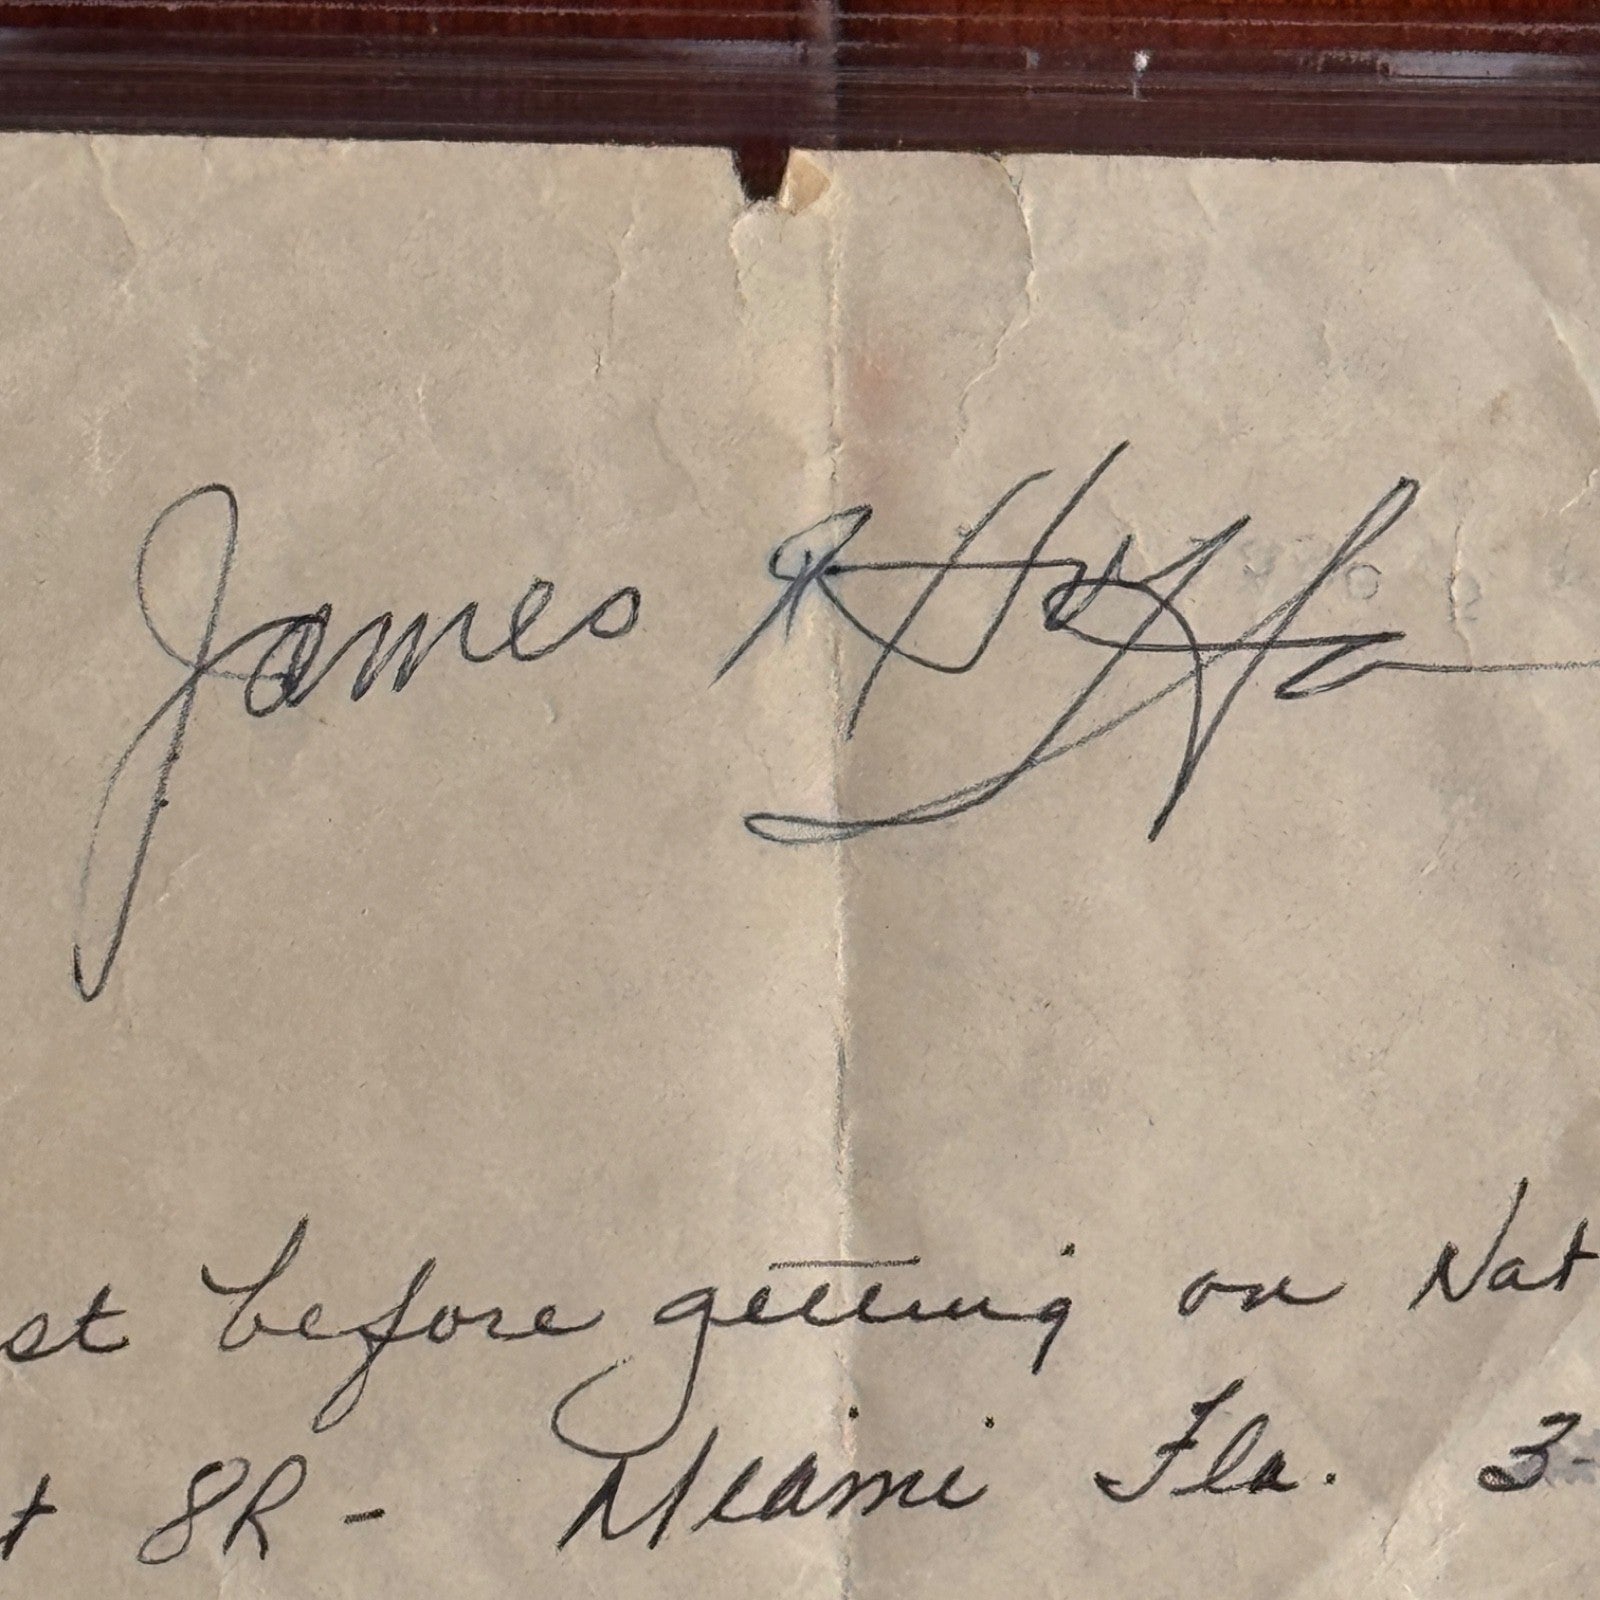 James R Hoffa
st before getting on Nat
t 8R - Miami Fla. 3-